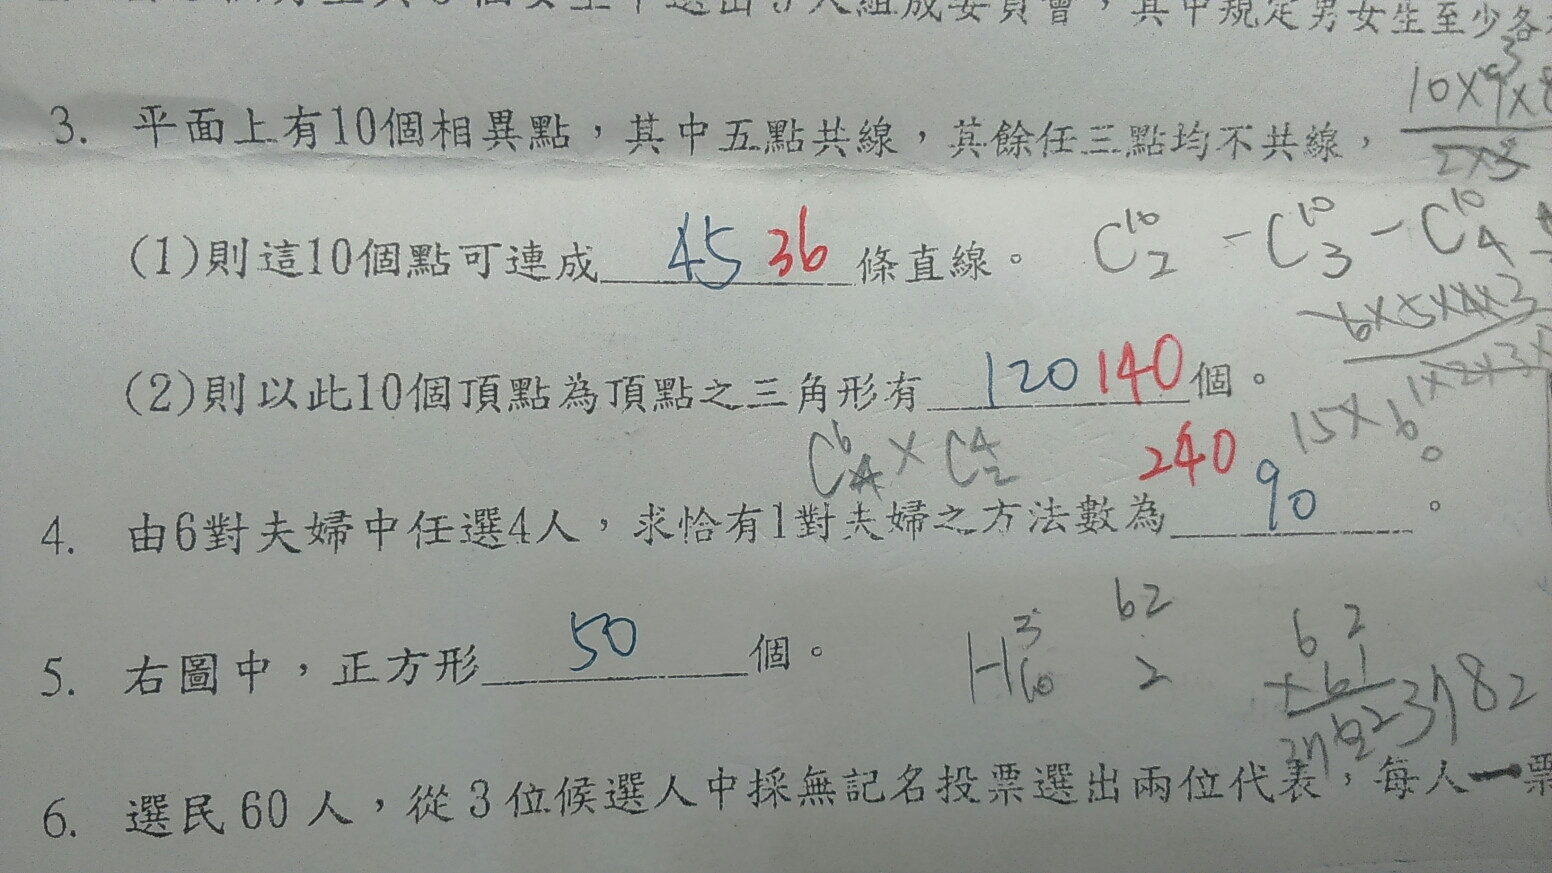 選出5人組成委員會，其中規定男女生至少各
10×9×8
2×3
3. 平面上有10個相異點，其中五點共線，其餘任三點均不共線，
3
(1)則這10個點可連成 45 36 條直線。 C¹⁰₂ - C¹⁰₃ - C¹⁰₄
6×5×4×3
1×2×3×
(2)則以此10個頂點為頂點之三角形有 120 140 個。
C⁶₄ × C⁴₂ 240 15×6
4. 由6對夫婦中任選4人，求恰有1對夫婦之方法數為 90 。
5. 右圖中，正方形 50 個。 H³₆₀ 62 2
62
×61
3782
6. 選民60人，從3位候選人中採無記名投票選出兩位代表，每人一票